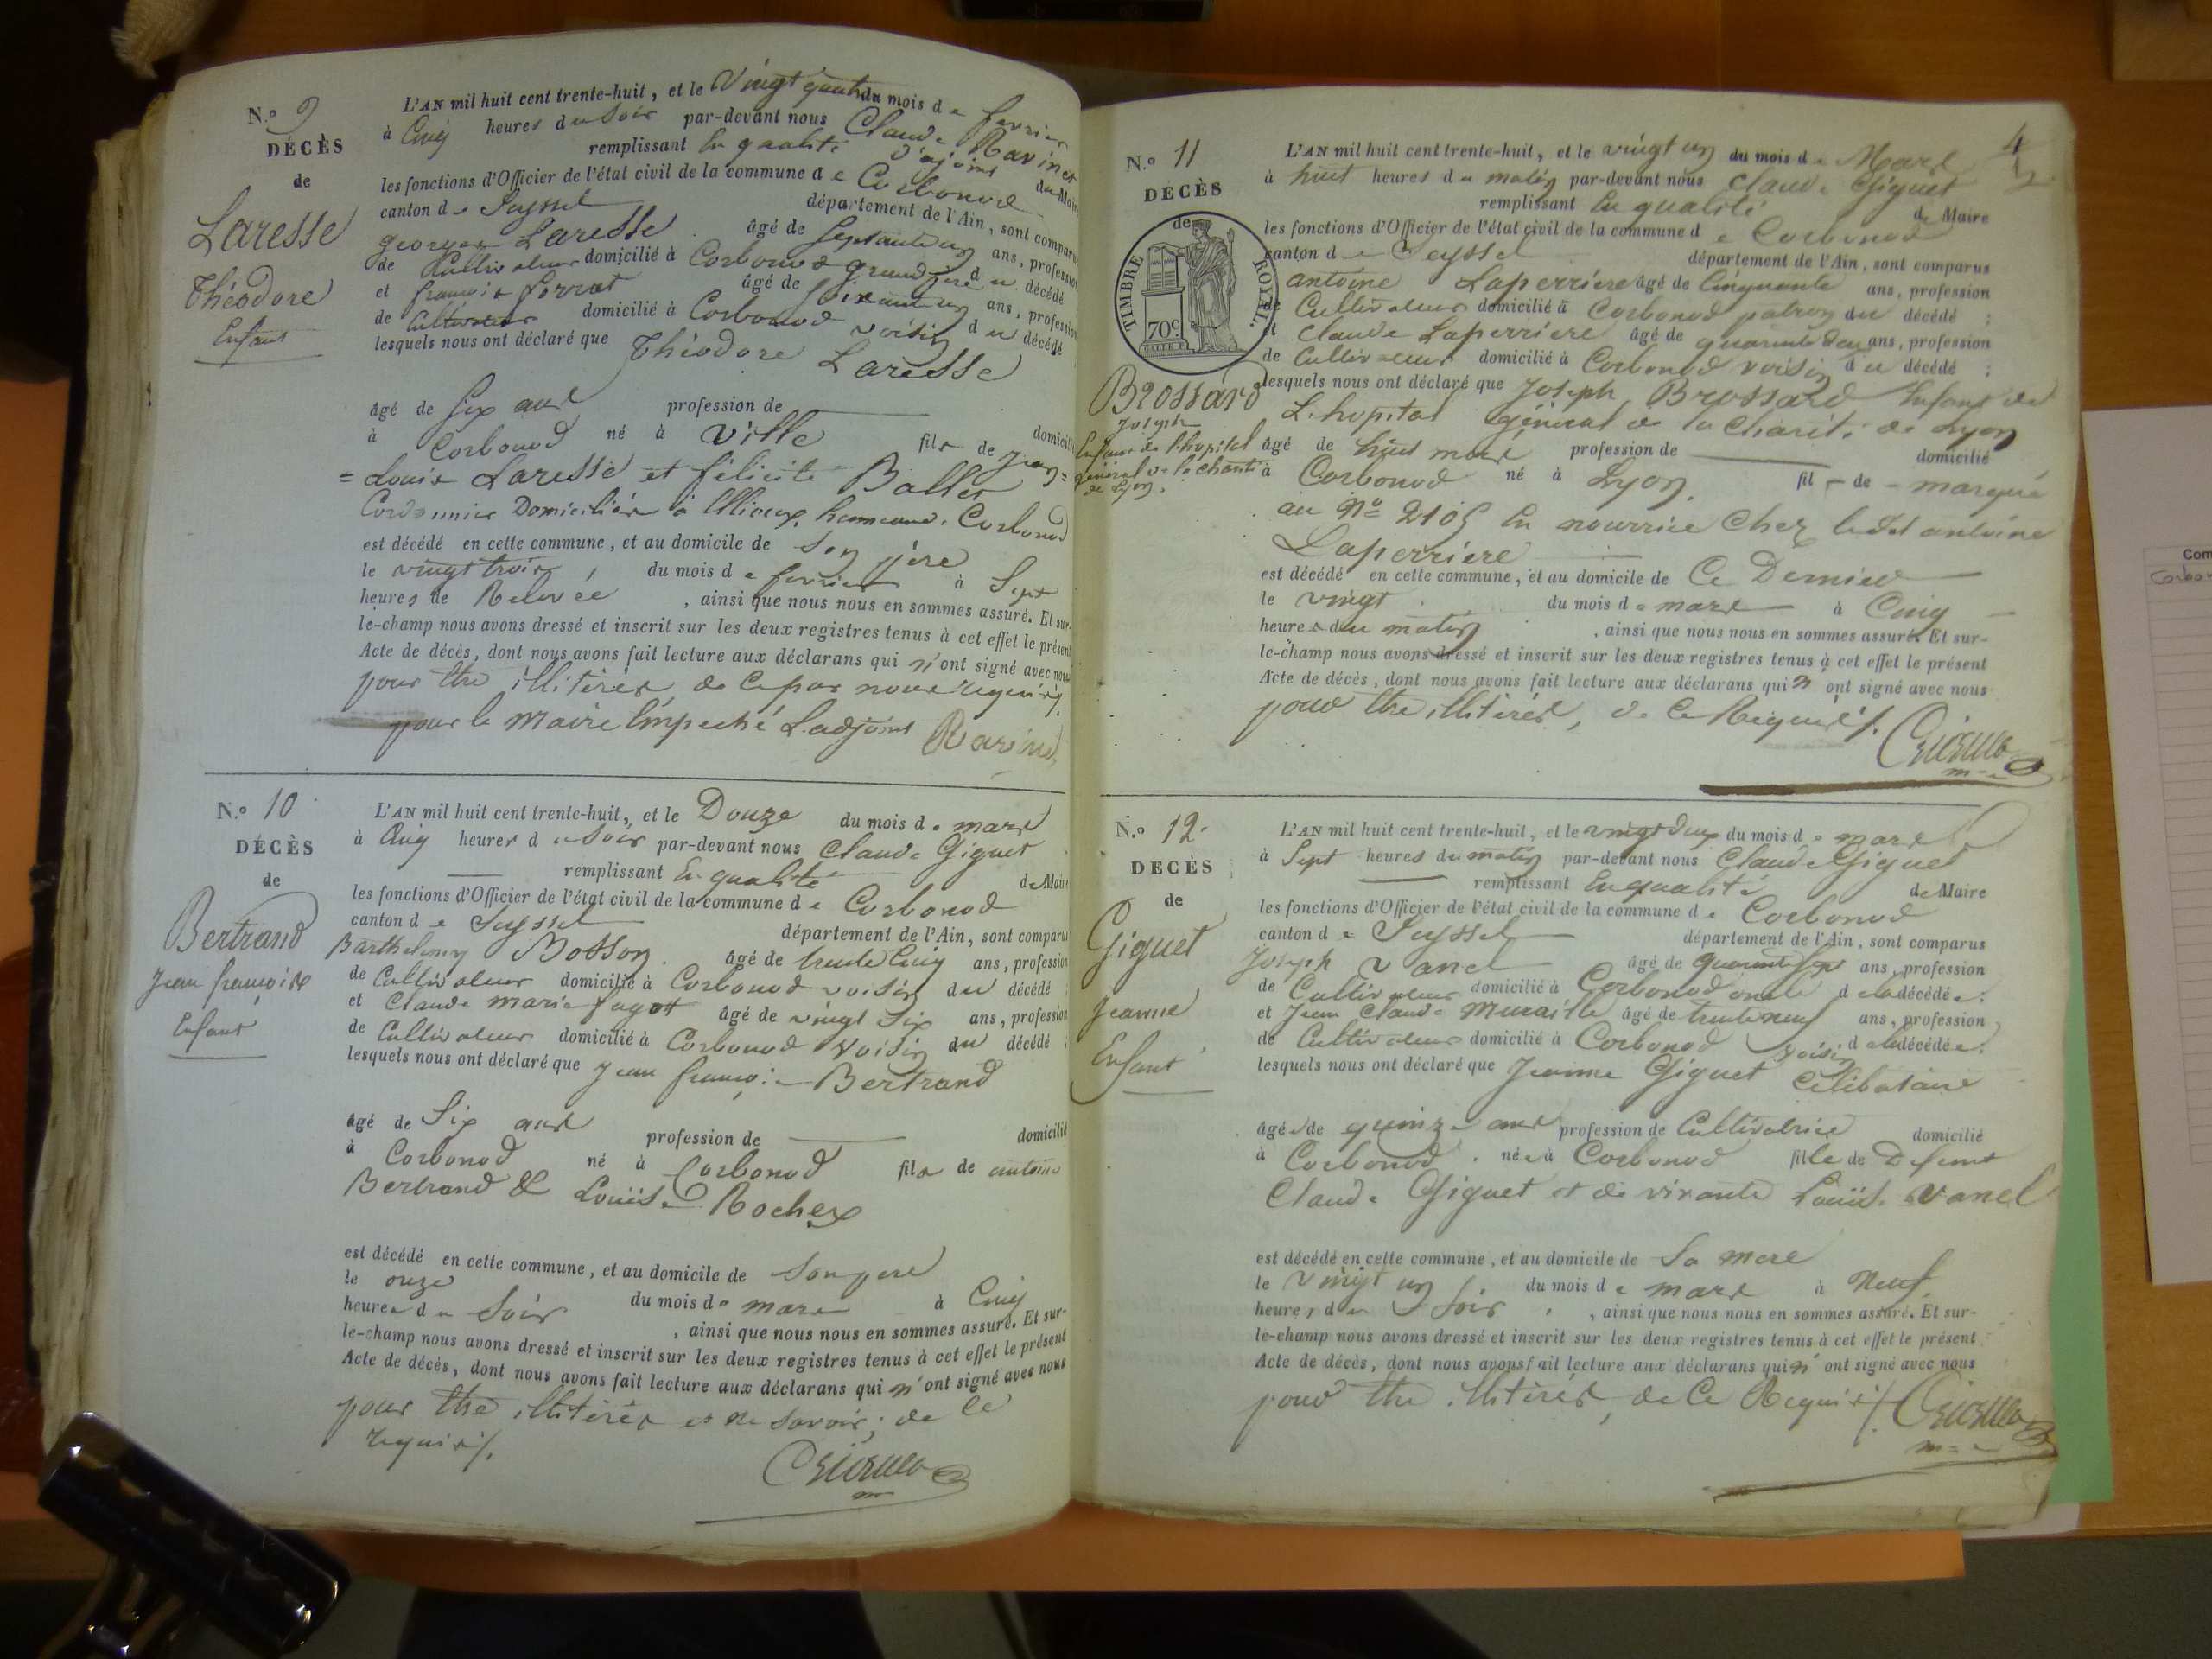 N.º 9
DÉCÈS
de
Laresse
Théodore
Enfant
L'AN mil huit cent trente-huit, et le Vingt quatre du mois de fevrier
à Cinq heures du Soir par-devant nous Claude Ravinet
remplissant En qualité d'ajoint du Maire
les fonctions d'Officier de l'état civil de la commune de Corbonod
canton de Seyssel département de l'Ain, sont comparus
georges Laresse âgé de Septante un ans, profession
de Cultivateur domicilié à Corbonod grand père du décédé
et françois forrat âgé de Soixante un ans, profession
de Cultivateur domicilié à Corbonod voisin du décédé
lesquels nous ont déclaré que Théodore Laresse
âgé de Six ans profession de domicilié
à Corbonod né à Ville fils de Jean=
=Louis Laresse et félicité Ballet
Cordonnier Domiciliés à hameau. Corbonod
est décédé en cette commune, et au domicile de Son père
le vingt trois, du mois de fevrier à Sept
heures de Relevée, ainsi que nous nous en sommes assuré. Et sur-
le-champ nous avons dressé et inscrit sur les deux registres tenus à cet effet le présent
Acte de décès, dont nous avons fait lecture aux déclarans qui n'ont signé avec nous
pour être illitérés de ce par nous requis/.
pour le Maire Empeché L'adjoint Ravinet
N.º 10
DÉCÈS
de
Bertrand
Jean françois
Enfant
L'AN mil huit cent trente-huit, et le Douze du mois de mars
à Cinq heures du Soir par-devant nous Claude Giguet
remplissant En qualité de Maire
les fonctions d'Officier de l'état civil de la commune de Corbonod
canton de Seyssel département de l'Ain, sont comparus
Barthelemy Bosson. âgé de trente Cinq ans, profession
de Cultivateur domicilié à Corbonod voisin du décédé
et Claude Marie fagot âgé de vingt Six ans, profession
de Cultivateur domicilié à Corbonod Voisin du décédé
lesquels nous ont déclaré que Jean françois Bertrand
âgé de Six ans profession de domicilié
à Corbonod né à Corbonod fils de antoine
Bertrand & Louise Rochex
est décédé en cette commune, et au domicile de Son pere
le onze du mois de mars à Cinq
heures du Soir, ainsi que nous nous en sommes assuré. Et sur-
le-champ nous avons dressé et inscrit sur les deux registres tenus à cet effet le présent
Acte de décès, dont nous avons fait lecture aux déclarans qui n'ont signé avec nous
pour être illitérés et ne savoir; de ce
requis/.
4
N.º 11
DÉCÈS
de
TIMBRE ROYAL.
70c
Brossard
Joseph
Enfant de l'hopital
général de la charité
de Lyon.
L'AN mil huit cent trente-huit, et le vingt un du mois de Mars
à huit heures du matin par-devant nous Claude Giguet
remplissant En qualité de Maire
les fonctions d'Officier de l'état civil de la commune de Corbonod
canton de Seyssel département de l'Ain, sont comparus
antoine Laperriere âgé de Cinquante ans, profession
de Cultivateur domicilié à Corbonod patron du décédé ;
et Claude Laperriere âgé de quarante deux ans, profession
de Cultivateur domicilié à Corbonod voisin du décédé ;
lesquels nous ont déclaré que Joseph Brossard Enfant de
L'hopital général de la Charité de Lyon
âgé de huit mois profession de domicilié
à Corbonod né à Lyon. fils de marqué
au Nº 2105 En nourrice Chez ledit antoine
Laperriere
est décédé en cette commune, et au domicile de Ce Dernier
le vingt du mois de mars à Cinq
heures du matin, ainsi que nous nous en sommes assuré. Et sur-
le-champ nous avons dressé et inscrit sur les deux registres tenus à cet effet le présent
Acte de décès, dont nous avons fait lecture aux déclarans qui n'ont signé avec nous
pour être illitérés, de Ce Requis/.
N.º 12.
DÉCÈS
de
Giguet
Jeanne
Enfant
L'AN mil huit cent trente-huit, et le vingt deux du mois de mars
à Sept heures du matin par-devant nous Claude Giguet
remplissant En qualité de Maire
les fonctions d'Officier de l'état civil de la commune de Corbonod
canton de Seyssel département de l'Ain, sont comparus
Joseph Vanel âgé de quarante Sept ans, profession
de Cultivateur domicilié à Corbonod oncle de la décédée.
et Jean Claude Muraille âgé de trente neuf ans, profession
de Cultivateur domicilié à Corbonod voisin de la décédée.
lesquels nous ont déclaré que Jeanne Giguet Célibataire
âgée de quinze ans profession de Cultivatrice domicilié
à Corbonod. née à Corbonod fille de Defunt
Claude Giguet et de vivante Louise Vanel
est décédé en cette commune, et au domicile de Sa mere
le Vingt un du mois de mars à Neuf.
heures du Soir, ainsi que nous nous en sommes assuré. Et sur-
le-champ nous avons dressé et inscrit sur les deux registres tenus à cet effet le présent
Acte de décès, dont nous avons fait lecture aux déclarans qui n'ont signé avec nous
pour être illitérés, de Ce Requis/.
Com